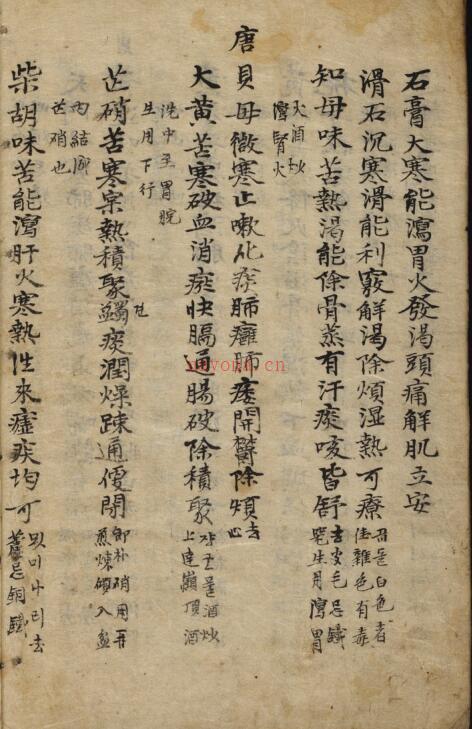 石膏大寒能瀉胃火發渴頭痛解肌立安
滑石沉寒滑能利竅解渴除煩湿熱可療
白色者
佳雜色有毒
知母味苦熱渴能除骨蒸有汗痰咳皆舒
去皮毛忌鐵
生用瀉胃
火酒炒
瀉腎火
唐
貝母微寒止嗽化痰肺癰肺痿開鬱除煩
去心
大黃苦寒破血消痰快膈通腸破除積聚
酒炒
上達巔頂酒
洗中至胃脘
生用下行
芒硝苦寒宗熱積聚蠲痰潤燥踈通便閉
卽朴硝用再
煎煉傾入盆
內結
芒硝也
柴胡味苦能瀉肝火寒熱徃來瘧疾均可
믜나리去
蘆忌銅鐵
nayona.cn